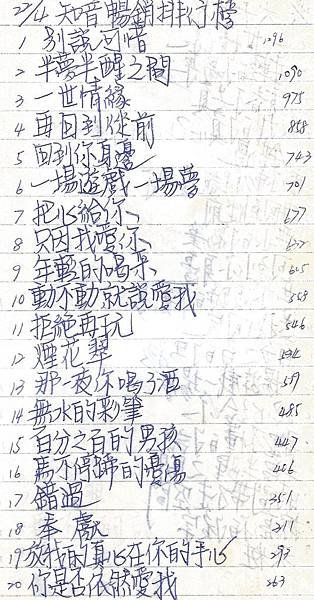 22/4 知音暢銷排行榜
1 別說可惜 1296
2 半夢半醒之間 1090
3 一世情緣 975
4 再回到從前 858
5 回到你身邊 743
6 一場遊戲一場夢 701
7 把心給你 677
8 只因我愛你
9 年輕的喝采 605
10 動不動就說愛我 553
11 拒絕再玩 546
12 煙花翠
13 那一夜你喝了酒 509
14 無水的彩筆 485
15 百分之百的男孩 447
16 馬不停蹄的憂傷 406
17 錯過 351
18 奉獻 311
19 放我的真心在你的手心 293
20 你是否依然愛我 263